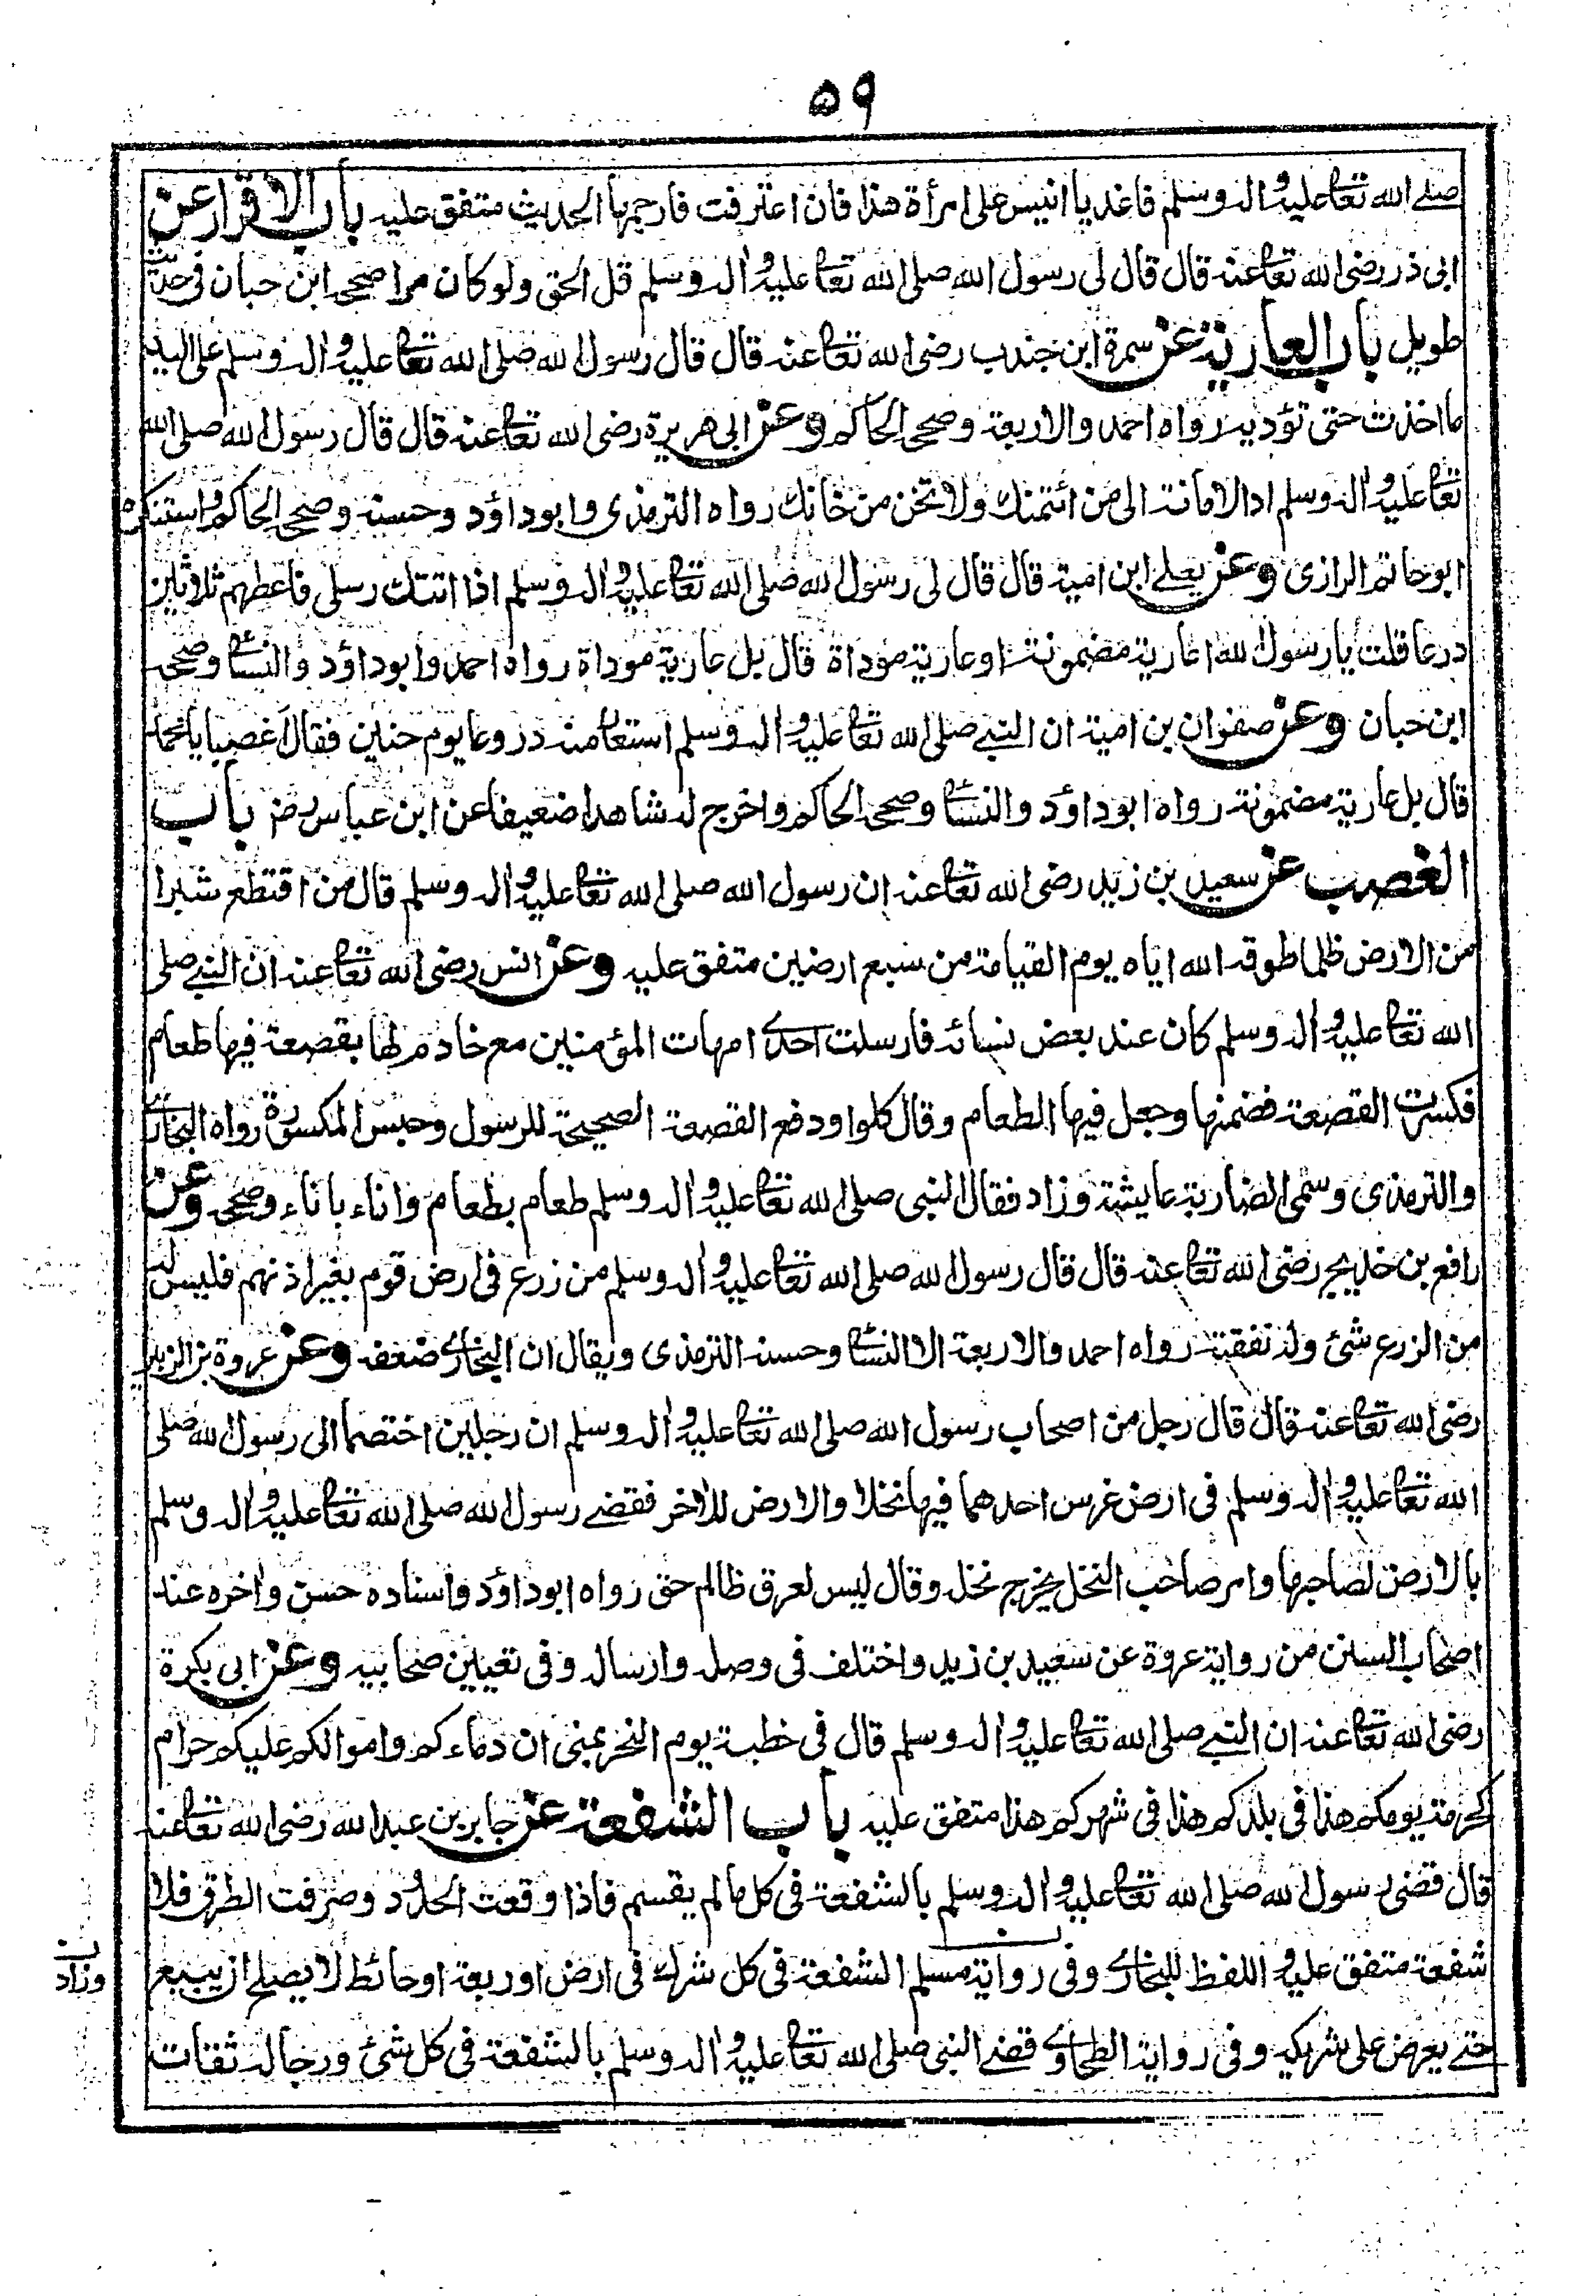 ۵۹
صلے الله تعالى عليه واله وسلم قاغد يا انيس على امرأة هذا فان اعترفت فارجمها الحديث متفق عليه باب الاقرار عن
ابى ذر رضى الله تعالى عنه قال قال لى رسول الله صلى الله تعالى عليه واله وسلم قل الحق ولو كان مرا صححه ابن حبان فى حديث
طويل باب العارية عن سمرة ابن جندب رضى الله تعالى عنه قال قال رسول الله صلى الله تعالى عليه واله وسلم على اليد
ما اخذت حتى تؤديه رواه احمد والاربعة وصححه الحاكم وعن ابى هريرة رضى الله تعالى عنه قال قال رسول الله صلى الله
تعالى عليه واله وسلم اد الامانة الى من ائتمنك ولا تخن من خانك رواه الترمذى وابوداؤد وحسنه وصححه الحاكم واستنكره
ابوحاتم الرازى وعن يعلے ابن امية قال قال لى رسول الله صلى الله تعالى عليه واله وسلم اذا اتتك رسلى فاعطهم ثلاثين
درعا قلت يا رسول الله اعارية مضمونة او عارية مؤداة قال بل عارية موداة رواه احمد وابوداؤد والنسائى وصححه
ابن حبان وعن صفوان بن امية ان النبے صلى الله تعالى عليه واله وسلم استعار منه دروعا يوم حنين فقال اغصبا يا محمد
قال بل عارية مضمونة رواه ابوداؤد والنسائى وصححه الحاكم واخرج له شاهدا ضعيفا عن ابن عباس رضـ باب
الغصب عن سعيد بن زيد رضى الله تعالى عنه ان رسول الله صلى الله تعالى عليه واله وسلم قال من اقتطع شبرا
من الارض ظلما طوقه الله اياه يوم القيامة من سبع ارضين متفق عليه وعن انس رضى الله تعالى عنه ان النبے صلى
الله تعالى عليه واله وسلم كان عند بعض نسائه فارسلت احدے امهات المؤمنين مع خادم لها بقصعة فيها طعام
فكسرت القصعة فضمنها وجعل فيها الطعام وقال كلوا ودفع القصعة الصحيحة للرسول وحبس المكسورة رواه البخارے
والترمذى وسمى الضاربة عايشة وزاد فقال النبى صلى الله تعالى عليه واله وسلم طعام بطعام واناء باناء وصححه وعن
رافع بن خديج رضى الله تعالى عنه قال قال رسول الله صلى الله تعالى عليه واله وسلم من زرع فى ارض قوم بغير اذنهم فليس له
من الزرع شئ وله نفقته رواه احمد والاربعة الا النسائى وحسنه الترمذى ويقال ان البخارے ضعفه وعن عروة بن الزبير
رضى الله تعالى عنه قال قال رجل من اصحاب رسول الله صلى الله تعالى عليه واله وسلم ان رجلين اختصما الى رسول الله صلى
الله تعالى عليه واله وسلم فى ارض غرس احدهما فيها نخلا والارض للاخر فقضے رسول الله صلى الله تعالى عليه واله وسلم
بالارض لصاحبها وامر صاحب النخل يخرج نخله وقال ليس لعرق ظالم حق رواه ابوداؤد واسناده حسن واخره عند
اصحاب السنن من رواية عروة عن سعيد بن زيد واختلف فى وصله وارساله وفى تعيين صحابيه وعن ابى بكرة
رضى الله تعالى عنه ان النبے صلى الله تعالى عليه واله وسلم قال فى خطبة يوم النحر بمنى ان دماءكم واموالكم عليكم حرام
كحرمة يومكم هذا فى بلدكم هذا فى شهركم هذا متفق عليه باب الشفعة عن جابر بن عبد الله رضى الله تعالى عنه
قال قضى رسول الله صلى الله تعالى عليه واله وسلم بالشفعة فى كل ما لم يقسم فاذا وقعت الحدود وصرفت الطرق فلا
شفعة متفق عليه واللفظ للبخارے وفى رواية مسلم الشفعة فى كل شرك فى ارض او ربعة او حائط لا يصلح ان يبيع
حتے يعرض على شريكه وفى رواية الطحاوے قضے النبى صلى الله تعالى عليه واله وسلم بالشفعة فى كل شئ ورجاله ثقات
ن
وزاد